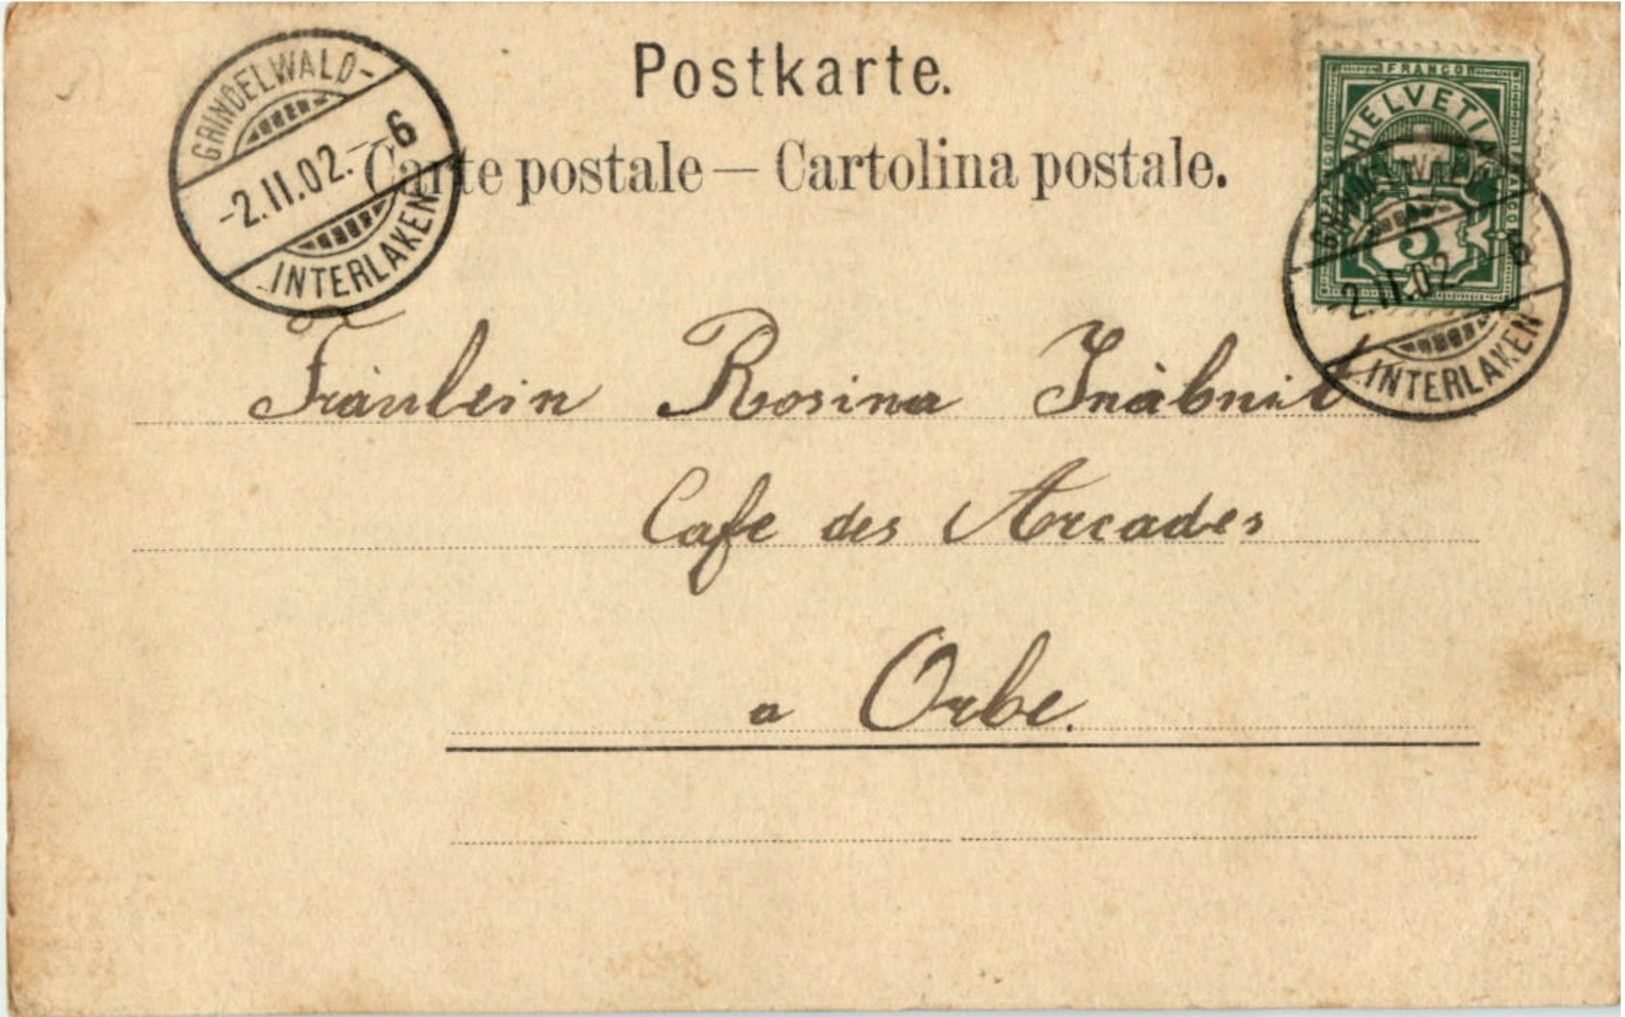 Postkarte.
Carte postale — Cartolina postale.
GRINDELWALD-
-2.II.02.-6
INTERLAKEN
FRANCO
HELVETIA
5
GRINDELWALD-
-2.II.02.-6
INTERLAKEN
Fräulein Rosina Inäbnit
Cafe des Arcades
a Orbe.